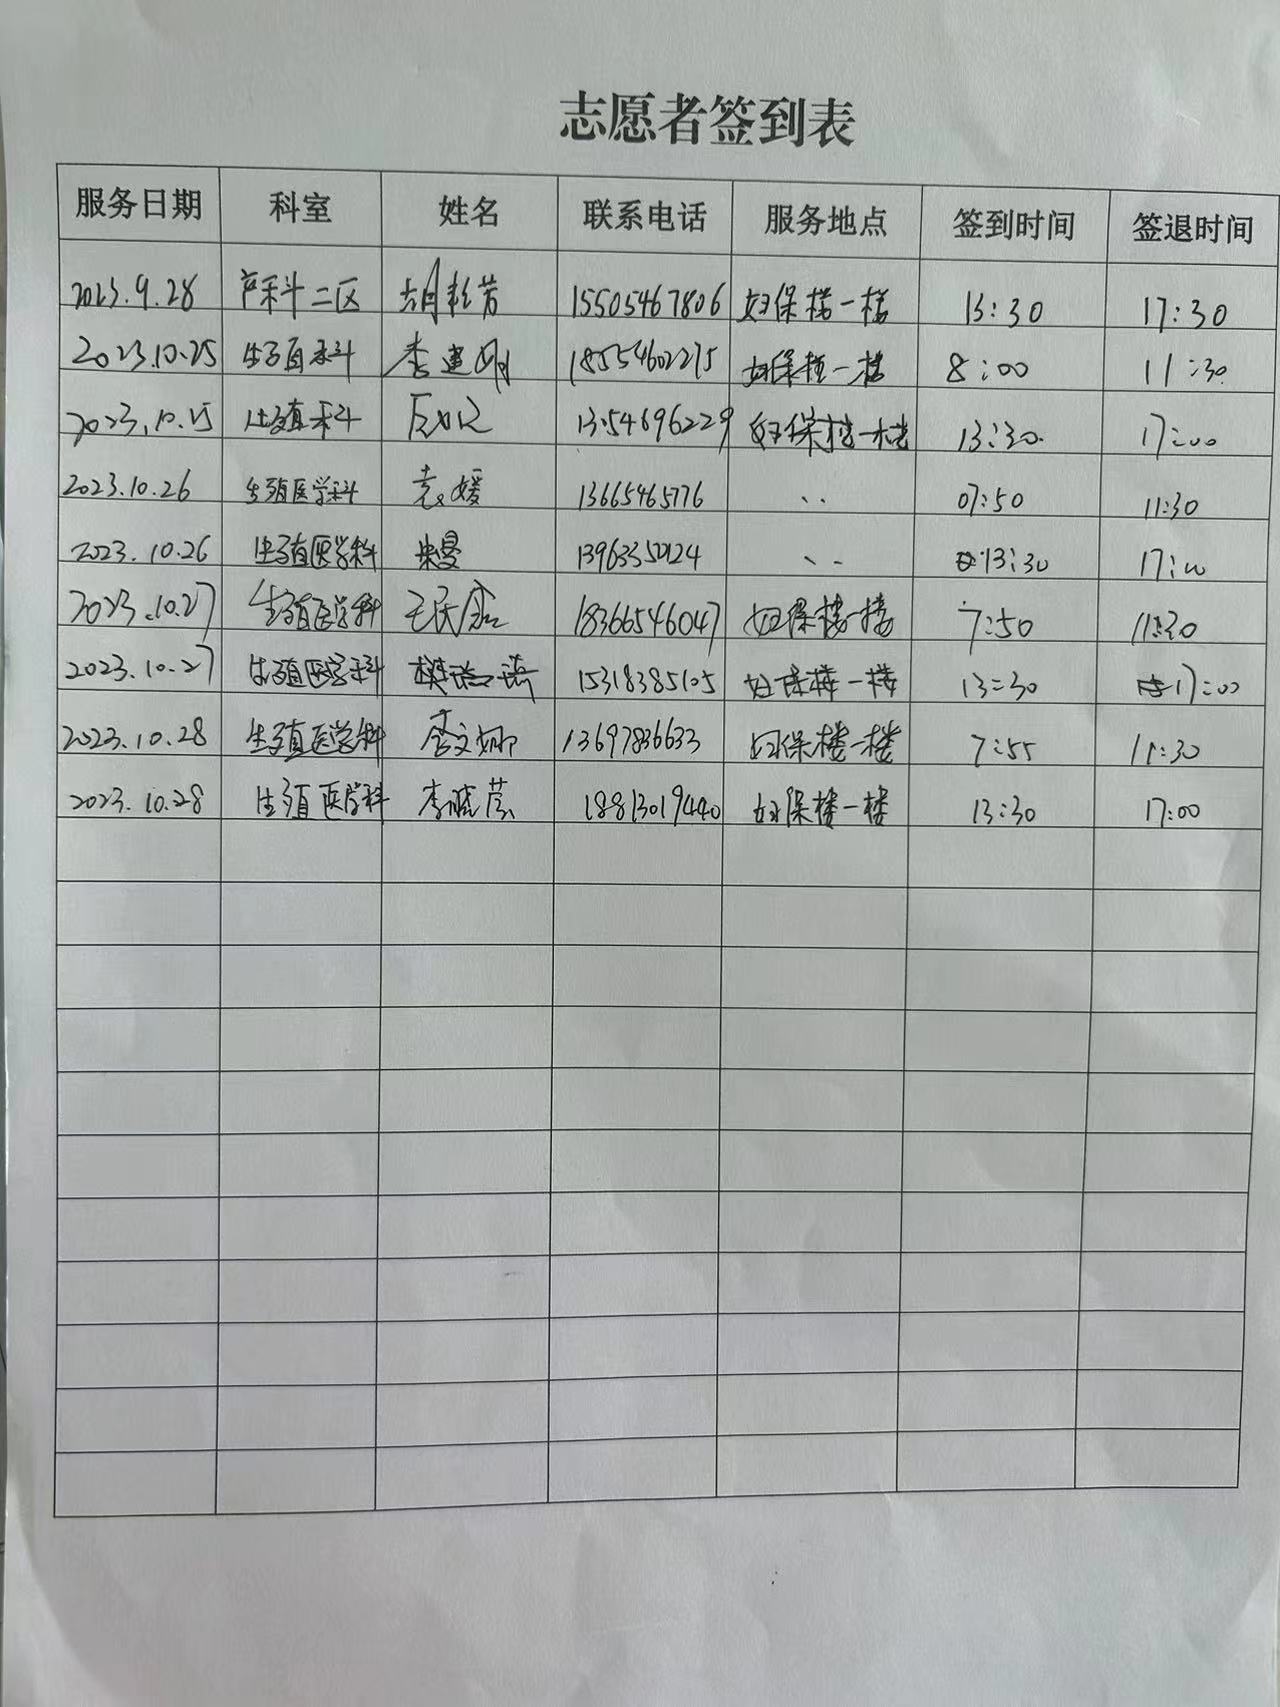 志愿者签到表
服务日期 科室 姓名 联系电话 服务地点 签到时间 签退时间
2023.9.28 产科二区 胡彩芳 15505467806 妇保楼一楼 13:30 17:30
2023.10.25 生殖科 李建刚 18554602275 妇保楼一楼 8:00 11:30
2023.10.25 生殖科 妇保楼一楼 13:30 17:00
2023.10.26 生殖医学科 袁媛 13665465776 、、 07:50 11:30
2023.10.26 生殖医学科 13963350124 、、 13:30 17:00
2023.10.27 生殖医学科 18366546047 妇保楼一楼 7:50 11:30
2023.10.27 生殖医学科 15318385105 妇保楼一楼 13:30 17:00
2023.10.28 生殖医学科 李文娜 13697836633 妇保楼一楼 7:55 11:30
2023.10.28 生殖医学科 李晓芬 18813019440 妇保楼一楼 13:30 17:00